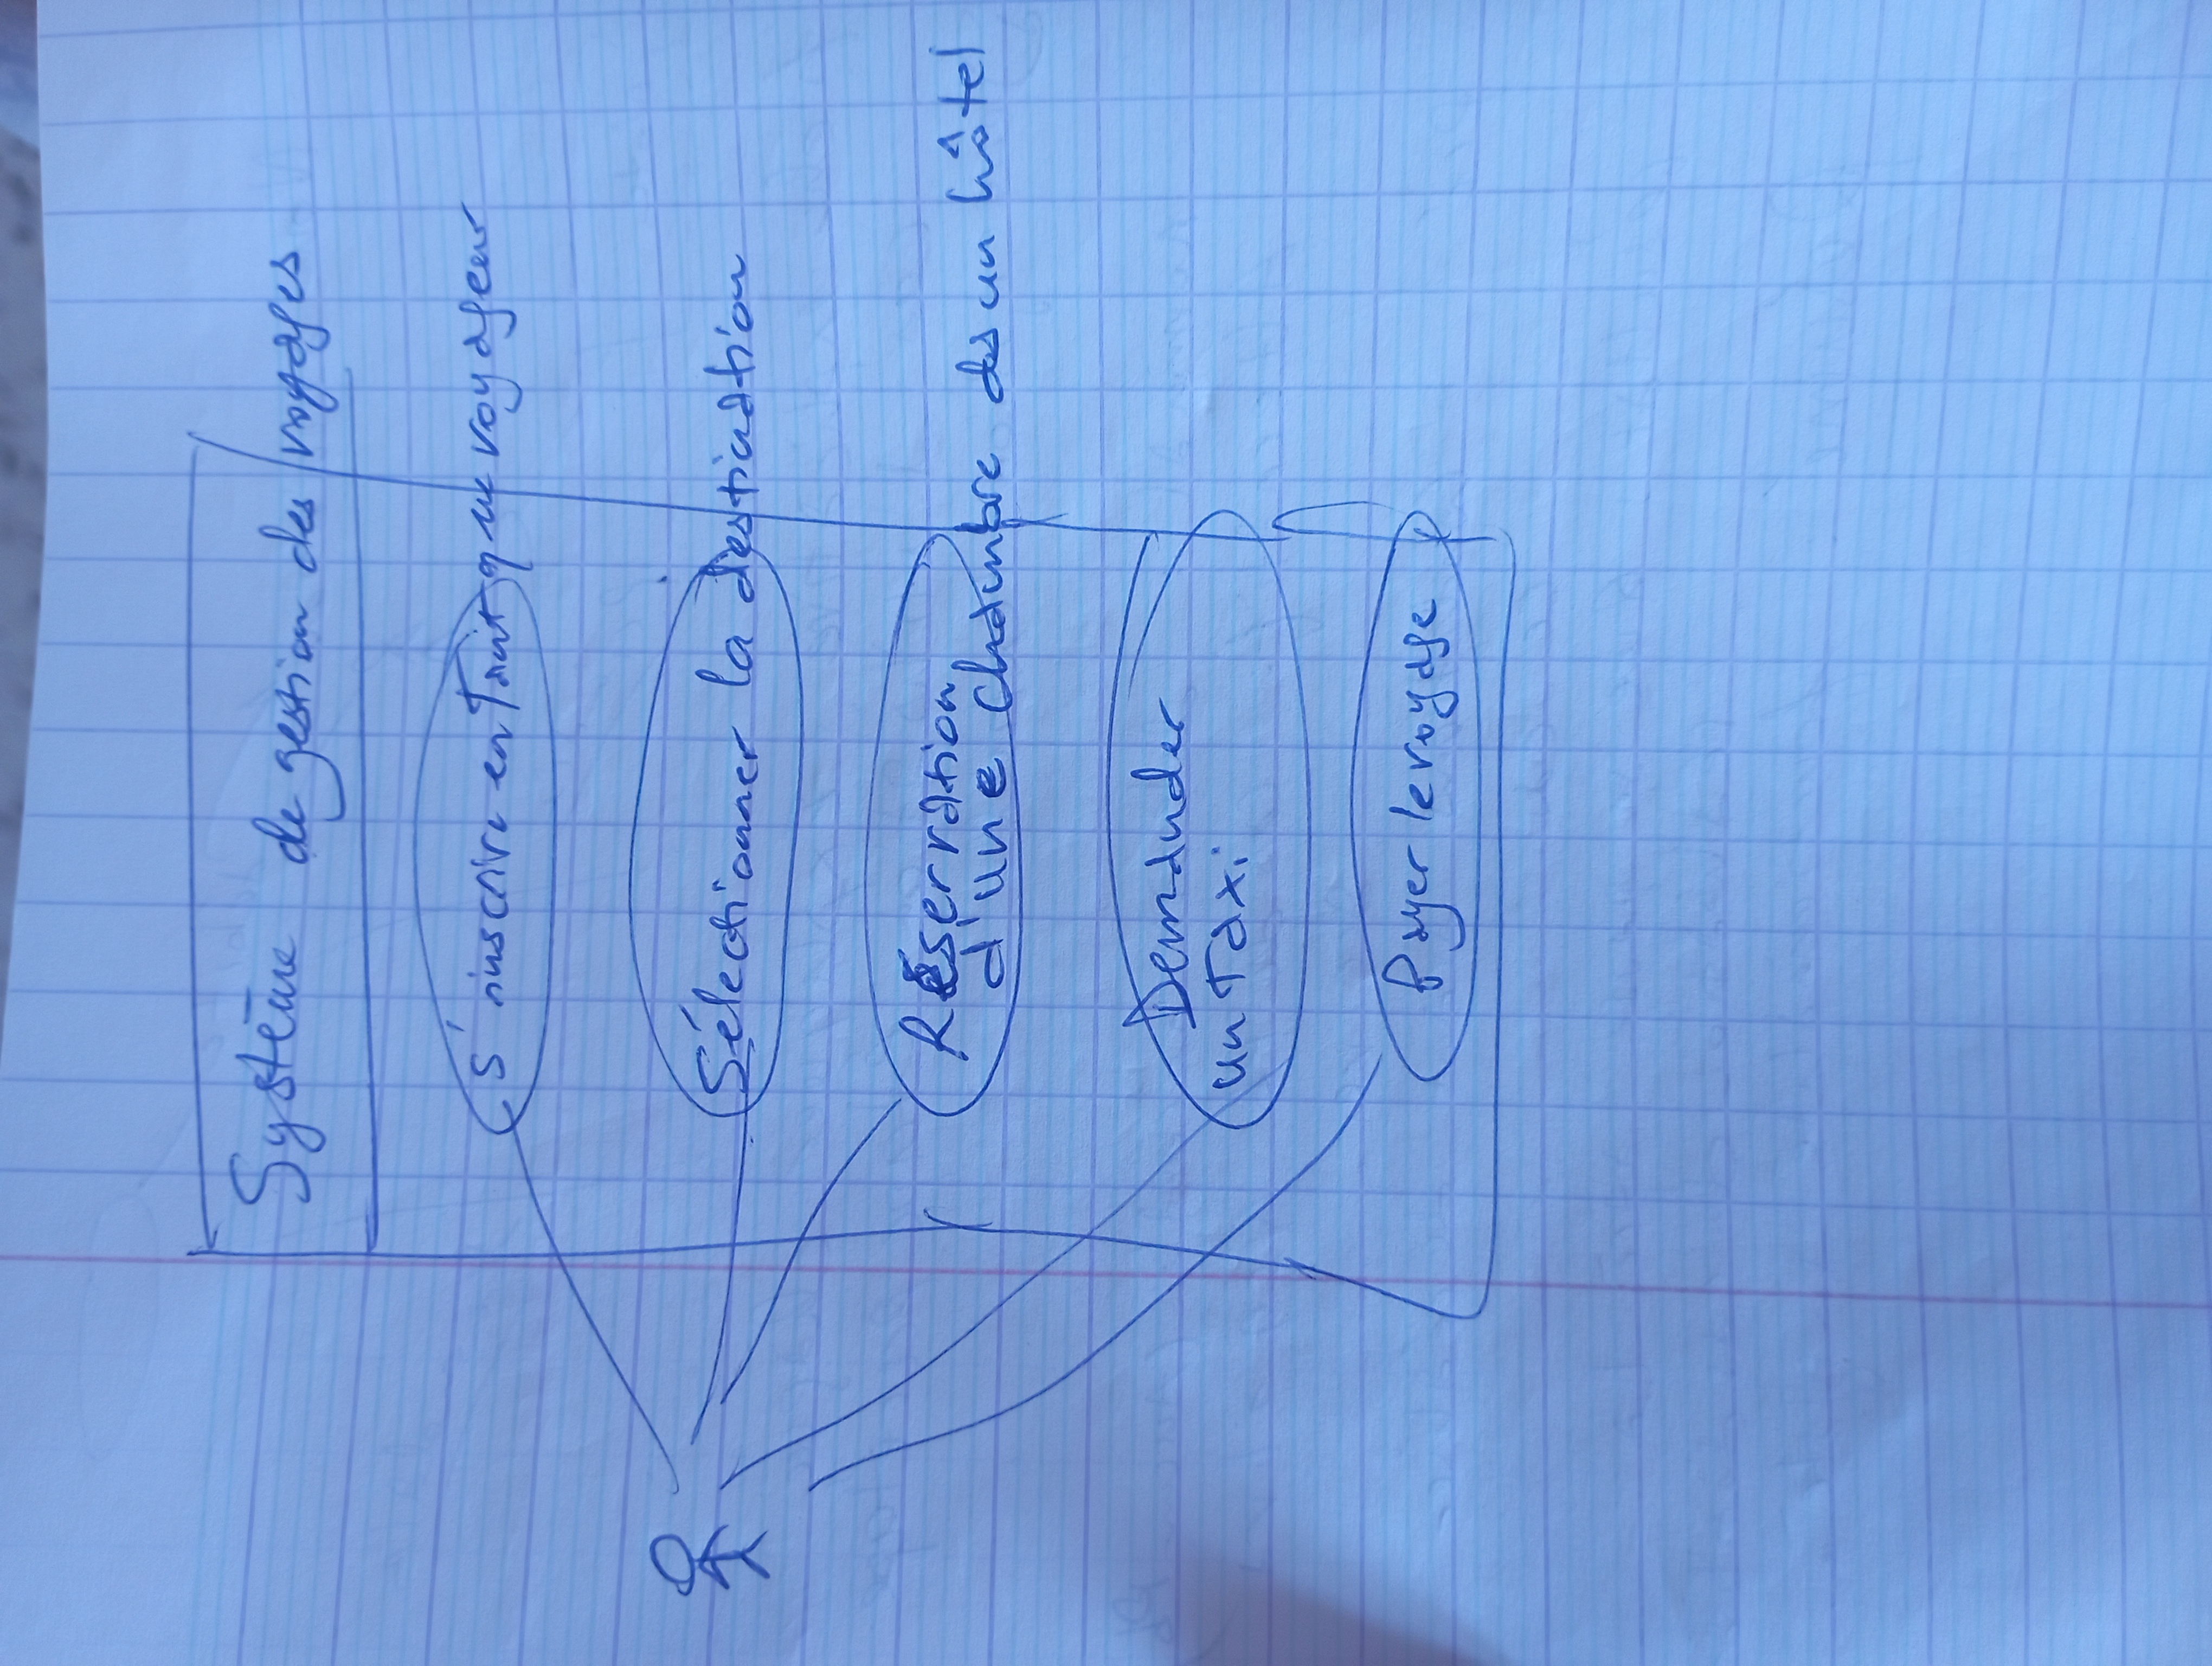 Système de gestion des voyages
s'inscrire en Tant que voyageur
Sélectionner la destination
Réservation
d'une chambre ds un hôtel
Demander
un Taxi
Payer le voyage